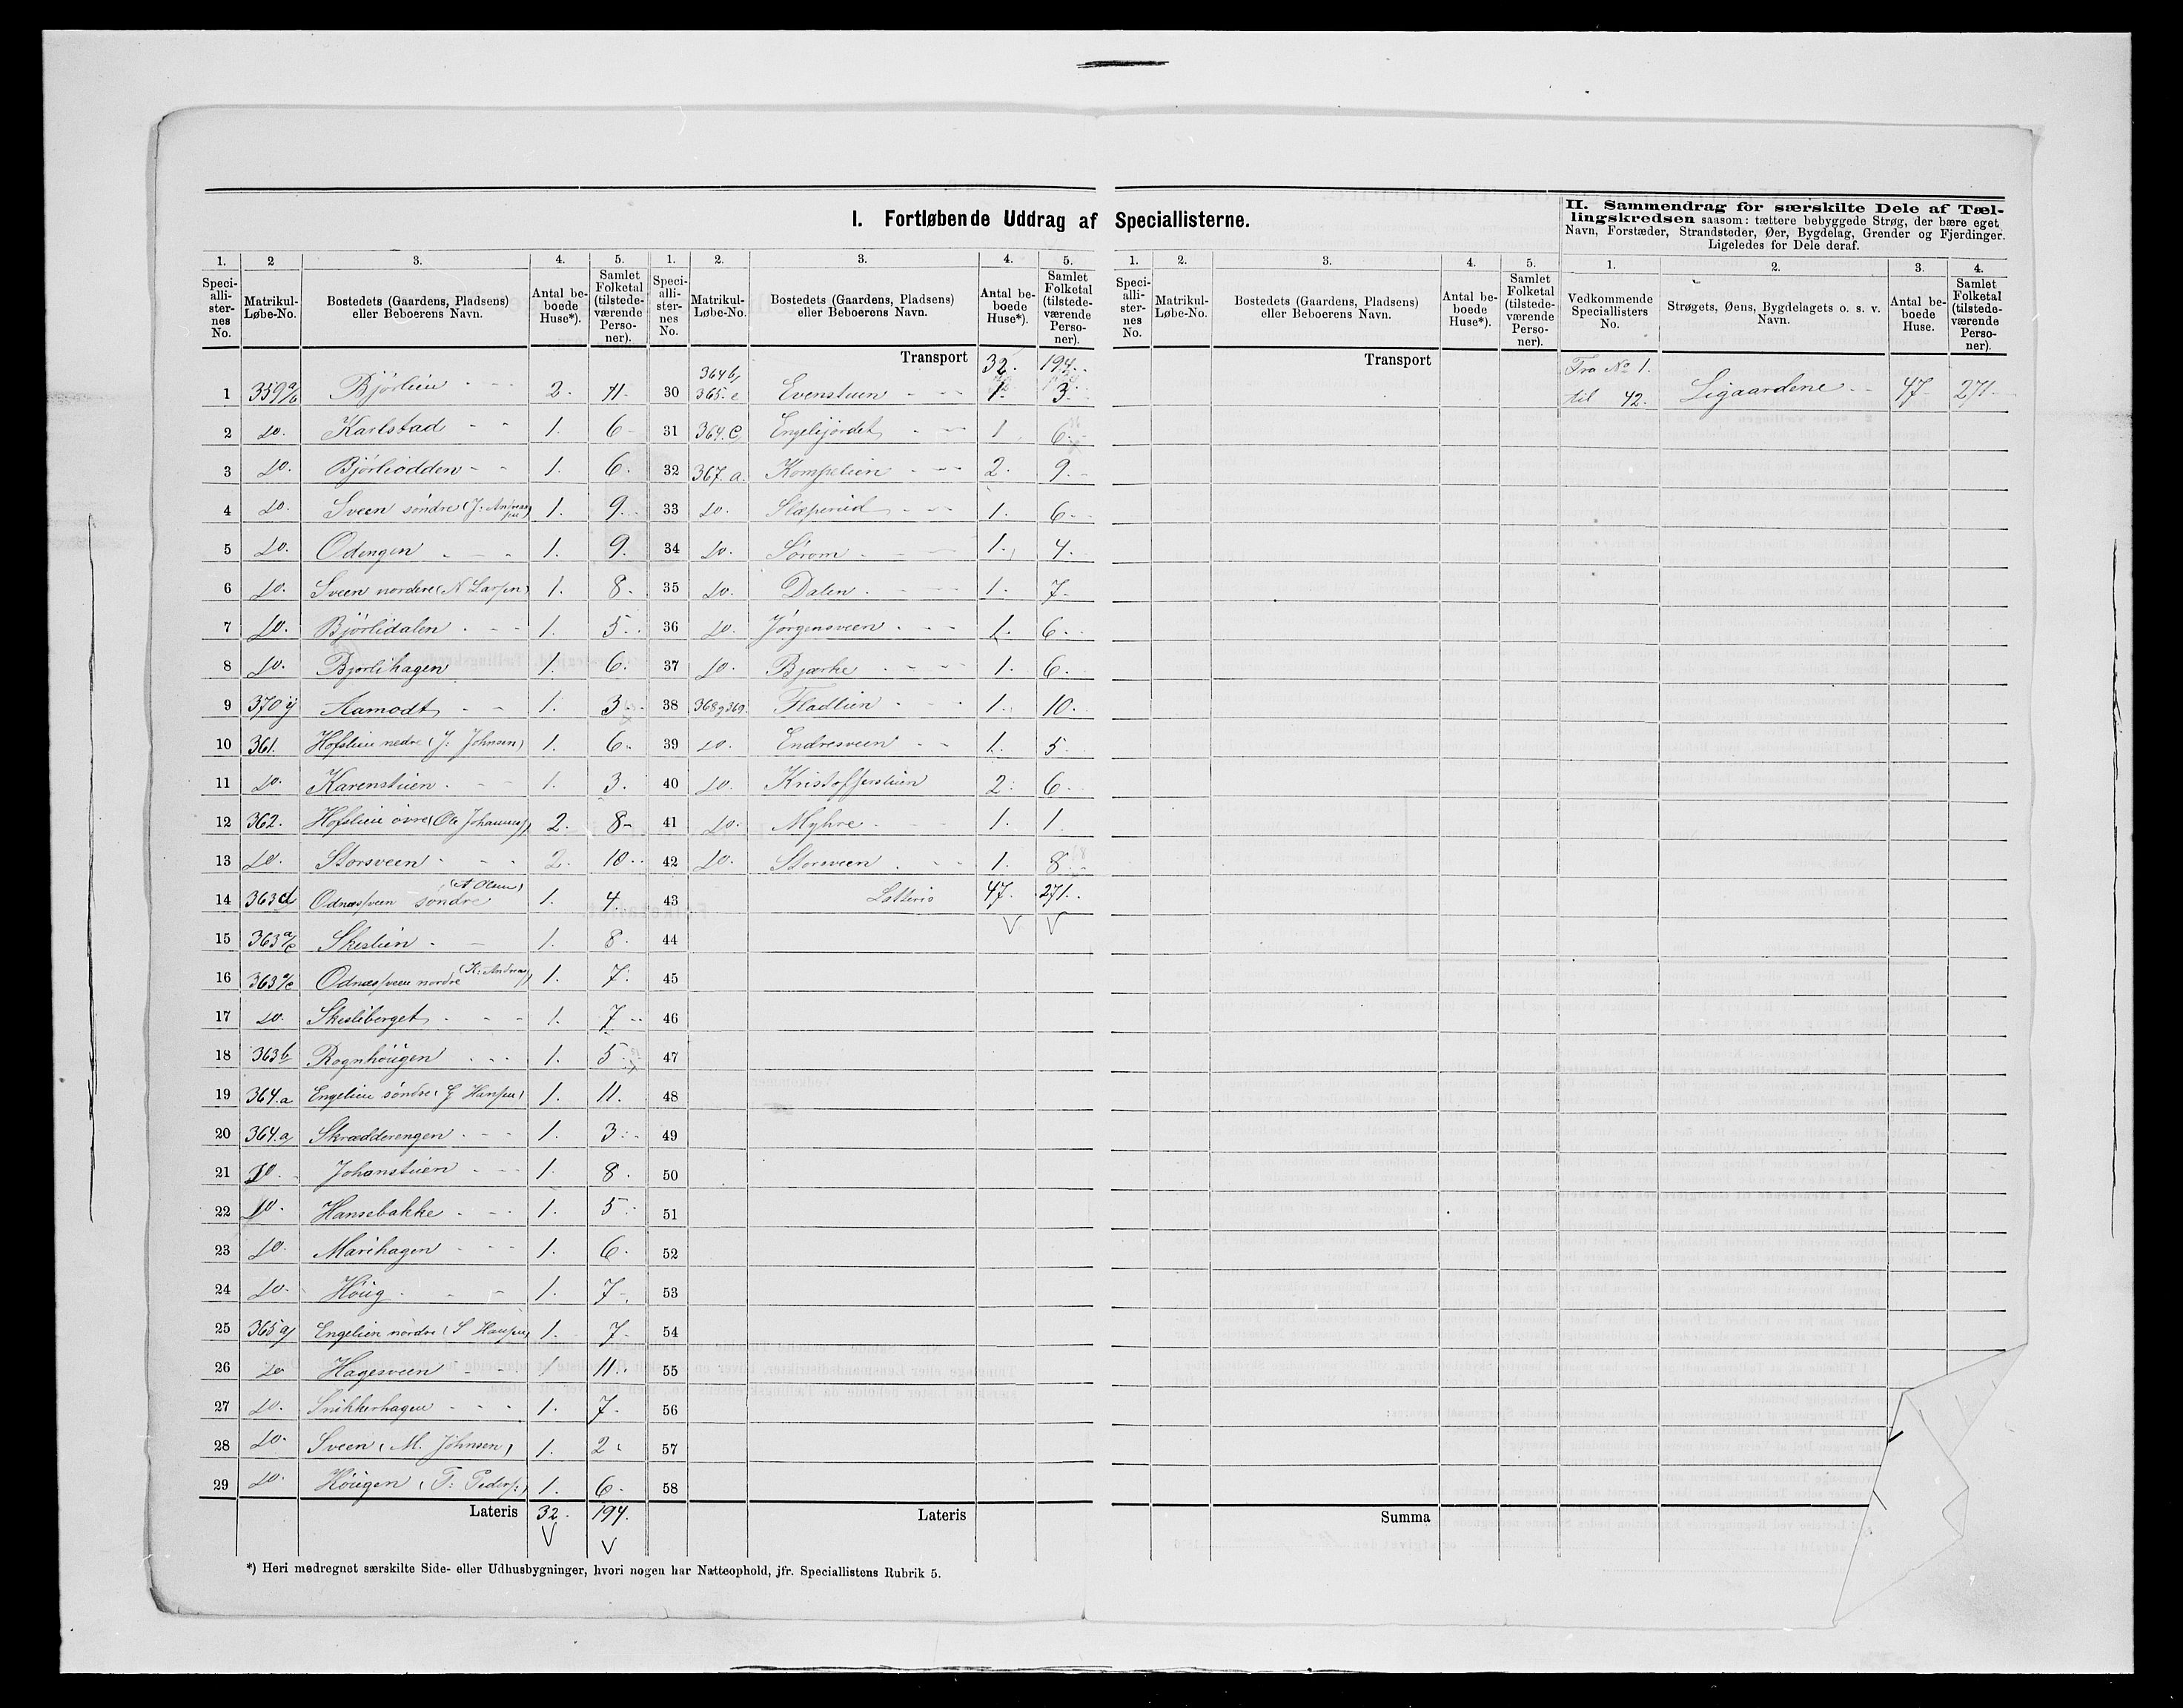 I. Fortløbende Uddrag af Speciallisterne.
II. Sammendrag for særskilte Dele af Tæl-
lingskredsen saasom: tættere bebyggede Strøg, der bære eget
Navn, Forstæder, Strandsteder, Øer, Bygdelag, Grender og Fjerdinger.
Ligeledes for Dele deraf.
1. 2 3. 4. 5. 1. 2. 3. 4. 5. 1. 2. 3. 4. 5. 1. 2. 3. 4.
Speci-alli-ster-nes No. Matrikul-Løbe-No. Bostedets (Gaardens, Pladsens) eller Beboerens Navn. Antal be-boede Huse*). Samlet Folketal (tilstede-værende Perso-ner).
Speci-alli-ster-nes No. Matrikul-Løbe-No. Bostedets (Gaardens, Pladsens) eller Beboerens Navn. Antal be-boede Huse*). Samlet Folketal (tilstede-værende Perso-ner).
Speci-alli-ster-nes No. Matrikul-Løbe-No. Bostedets (Gaardens, Pladsens) eller Beboerens Navn. Antal be-boede Huse*). Samlet Folketal (tilstede-værende Perso-ner).
Vedkommende Speciallisters No. Strøgets, Øens, Bygdelagets o. s. v. Navn. Antal be-boede Huse. Samlet Folketal (tilstede-værende Perso-ner).
1 359 a/b Bjørlien 2. 11.
2 Do. Karlstad 1. 6
3 Do. Bjørliodden 1. 6.
4 Do. Sveen søndre 1. 9.
5 Do. Odengen 1. 9.
6 Do. Sveen nordre (N Larsen) 1. 8.
7 Do. Bjørlidalen 1. 5.
8 Do. Bjørlihagen 1. 6.
9 370 Aamodt 1. 3
10 361. Hofslien nedre (J. Johnsen) 1. 6.
11 Do. Karenstuen 1. 3.
12 362. Hofslien øvre (Ole Johannes) 2. 8
13 Do. Storsveen 2. 10.
14 363d Odnæssveen søndre (A Olsen) 1. 4.
15 363 a/c Skeslien 1. 8.
16 363 Odnæssveen nordre (K. Andreas) 1. 7.
17 Do. Skesliberget 1. 7
18 363b Rognhougen 1. 5
19 364.a Engelien søndre (G Hansen) 1. 11.
20 364.a Skrædderengen 1. 3.
21 Do. Johanstuen 1. 8.
22 Do. Hansebakke 1. 5
23 Do. Marihagen 1. 6.
24 Do. Houg 1. 7
25 365a Engelien nordre (S Hansen) 1. 7
26 Do Hagesveen 1 11.
27 Do. Snikkerhagen 1. 7.
28 Do. Sveen (M. Johnsen) 1. 2
29 Do. Hougen (P. Peders.) 1. 6.
Lateris 32. 194.
Transport 32. 194.
30 364b, 365.e Evenstuen 1. 3.
31 364.c Engelijordet 1 6.
32 367.a. Kompelien 2. 9.
33 Do. Slæperud 1. 6
34 Do. Sørom 1. 4.
35 Do. Dalen 1. 7
36 Do. Jørgensveen 1. 6
37 Do. Bjærke 1. 6.
38 368,369. Fladlien 1. 10.
39 Do. Endresveen 1. 5
40 Do. Kristofferstuen 2. 6
41 Do. Myhre 1. 1
42 Do. Storsveen 1. 8
43 Latteris 47. 271.
44
45
46
47
48
49
50
51
52
53
54
55
56
57
58
Lateris
Transport
Summa
Fra No 1.
til 42. Ligaardene 47 271
*) Heri medregnet særskilte Side- eller Udhusbygninger, hvori nogen har Natteophold, jfr. Speciallistens Rubrik 5.